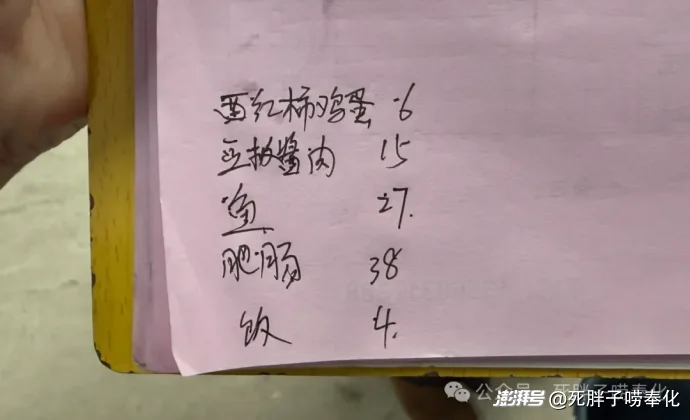 西红柿鸡蛋 6
豆板酱肉 15
鱼 27.
肥肠 38
饭 4.
公众号 死胖子唠奉化
澎湃号@死胖子唠奉化